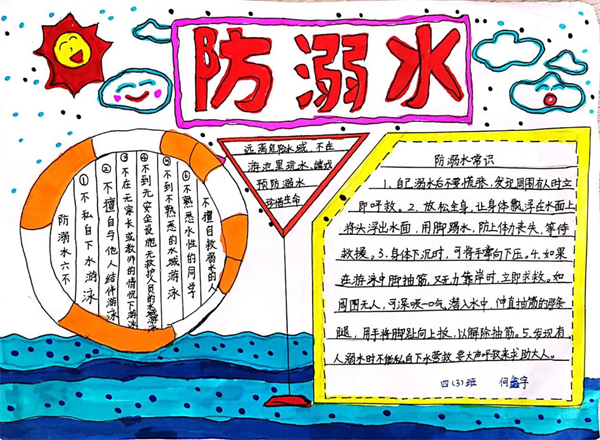 防溺水
防溺水六不
①不私自下水游泳
②不擅自与他人结伴游泳
③不在无家长或教师的情况下游泳
④不到无安全设施无救护人员的水域游泳
⑤不到不熟悉的水域游泳
⑥不熟悉水性的同学
不擅自救溺水的人
远离危险水域,不在
游池里疏水、嬉戏
预防溺水
珍惜生命
防溺水常识
1、自己溺水后不要慌张,发现周围有人时立
即呼救。2、放松全身,让身体飘浮在水面上
将头浮出水面,用脚踢水,防止体力丧失,等待
救援。3、身体下沉时,可将手掌向下压。4、如果
在游泳中脚抽筋,又无力靠岸时,立即求救。如
周围无人,可深吸一口气潜入水中,伸直抽筋的那条
腿,用手将脚趾向上扳,以解除抽筋。5、发现有
人溺水时不能私自下水营救 要大声呼救来求助大人。
四(3)班 何鑫宇